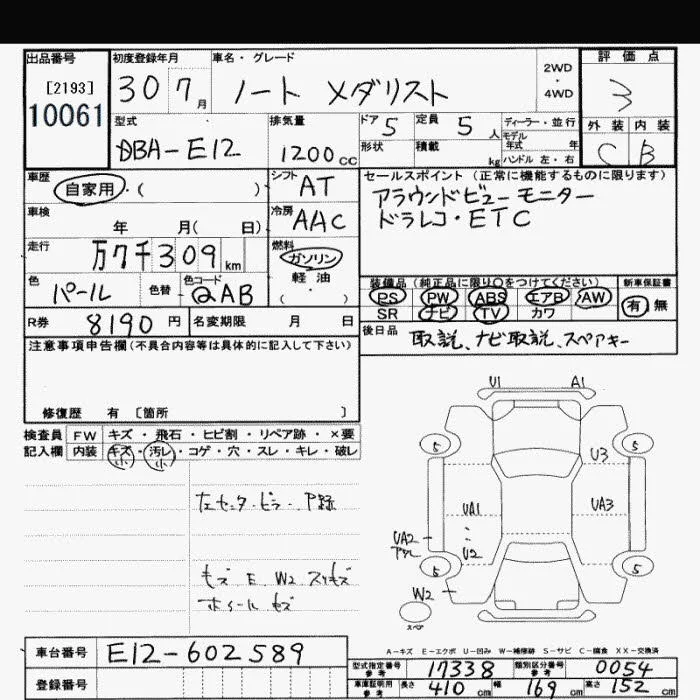 出品番号 初度登録年月 車名・グレード 2WD ・ 4WD 評価点
[2193] 30 7月 ノート メダリスト 3
10061
型式 排気量 ドア 5 定員 5人 ディーラー・並行 外装 内装
DBA-E12 1200cc 形状 積載 kg モデル年式 年 C B
ハンドル 左・右
車歴 自家用・( ) シフト AT セールスポイント (正常に機能するものに限ります)
アラウンドビューモニター
車検 年 月( 日) 冷房 AAC ドラレコ・ETC
走行 万7千309km 燃料 ガソリン 軽油 ( )
装備品 (純正品に限り○をつけてください) 新車保証書
色 パール 色替 色コード QAB PS PW ABS エアB AW 有 無
SR ナビ TV カワ
R券 8190円 名変期限 月 日 後日品 取説、ナビ取説、スペアキー
注意事項申告欄(不具合内容等は具体的に記入して下さい)
修復歴 有 [箇所 ]
検査員 FW キズ・飛石・ヒビ割・リペア跡・×要
記入欄 内装 キズ・汚レ・コゲ・穴・スレ・キレ・破レ
小 小
U1 A1
5 5
U3
UA1 UA3
UA2
U2
5 5
W2
スペア
キズ E W2
ホイール キズ
A-キズ E-エクボ U-凹み W-補修跡 S-サビ C-腐食 XX-交換済
車台番号 E12-602589 型式指定番号 参考 17338 類別区分番号 参考 0054
登録番号 車庫証明用 参考 長さ 410cm 幅 169cm 高さ 152cm